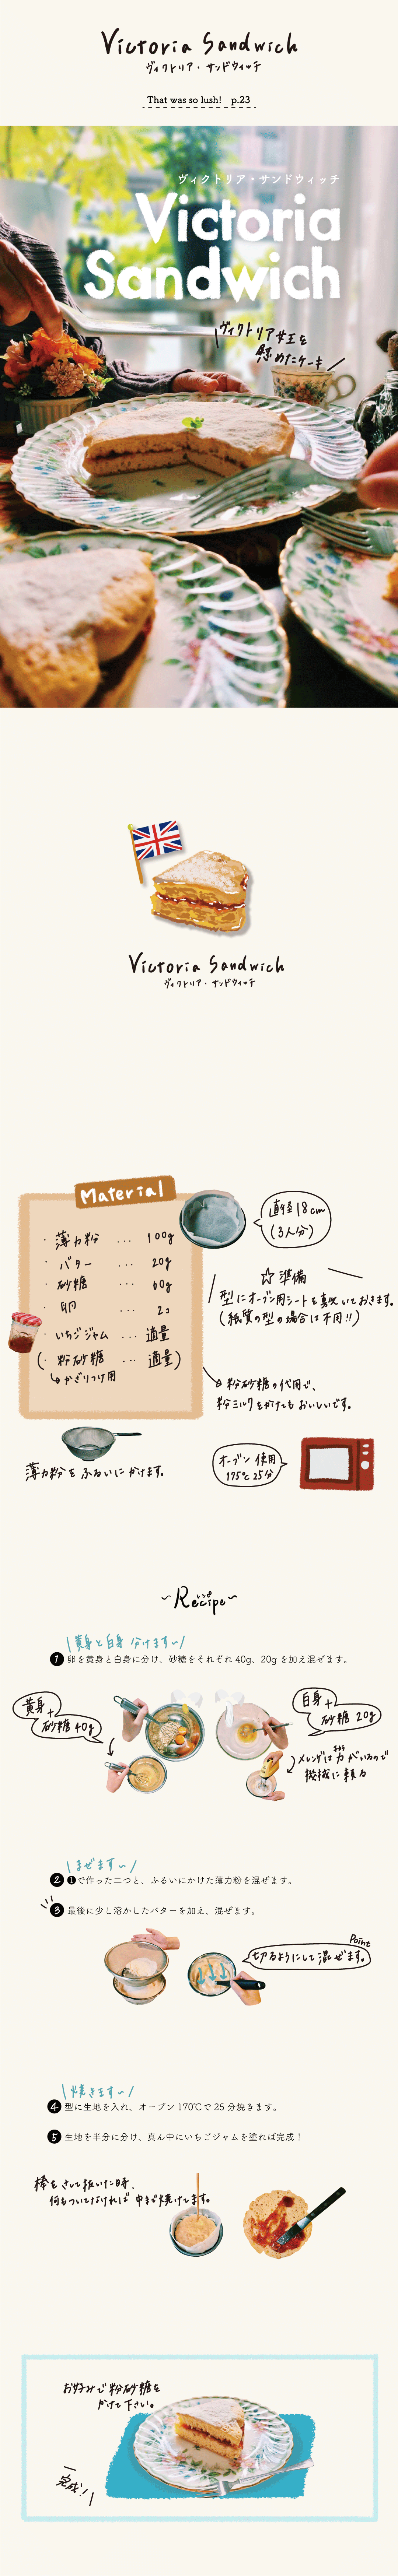 Victoria Sandwich
ヴィクトリア・サンドウィッチ
That was so lush! p.23
ヴィクトリア・サンドウィッチ
Victoria
Sandwich
ヴィクトリア女王を
慰めたケーキ
Victoria Sandwich
ヴィクトリア・サンドウィッチ
Material
・薄力粉 ... 100g
・バター ... 20g
・砂糖 ... 60g
・卵 ... 2コ
・いちごジャム ... 適量
(・粉砂糖 ... 適量)
かざりつけ用
直径18cm
(3人分)
☆準備
型にオーブン用シートを敷いておきます。
(紙質の型の場合は不用!!)
粉砂糖の代用で、
粉ミルクをかけてもおいしいです。
薄力粉をふるいにかけます。
オーブン使用
175℃25分
~Recipe~
レシピ
\黄身と白身分けます~/
1 卵を黄身と白身に分け、砂糖をそれぞれ 40g、20g を加え混ぜます。
黄身+
砂糖40g
白身+
砂糖20g
メレンゲは力がいるので
ちから
機械に頼る
\まぜます~/
2 ❶で作った二つと、ふるいにかけた薄力粉を混ぜます。
3 最後に少し溶かしたバターを加え、混ぜます。
Point
切るようにして混ぜます。
\焼きます~/
4 型に生地を入れ、オーブン 170℃で 25 分焼きます。
5 生地を半分に分け、真ん中にいちごジャムを塗れば完成！
棒をさして抜いた時、
何もついてなければ中まで焼けてます。
お好みで粉砂糖を
かけて下さい。
完成!